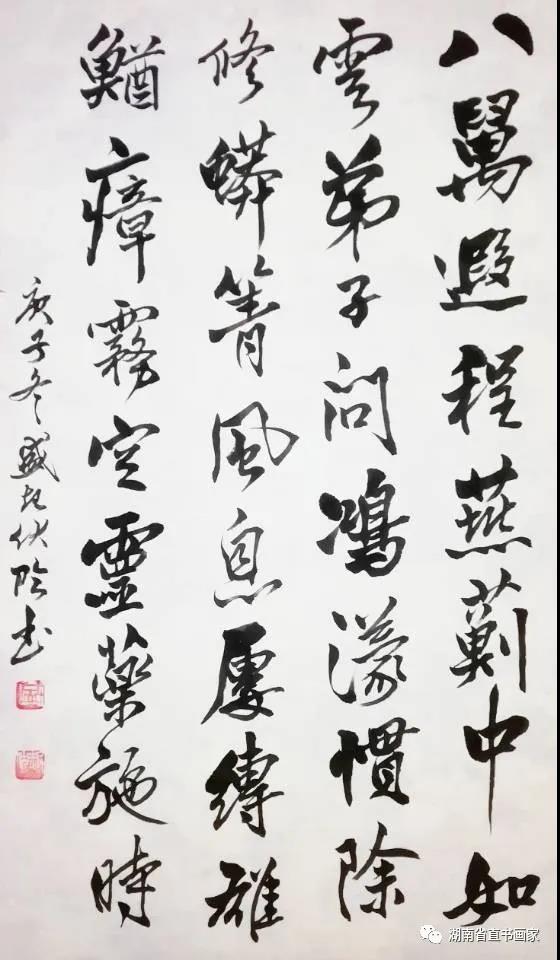 八萬遐程燕薊中如
雲弟子問鴻濛慣除
修蟒箐風息屢縛雄
鰌瘴霧空靈藥施時
庚子冬盛
湖南省直书画家